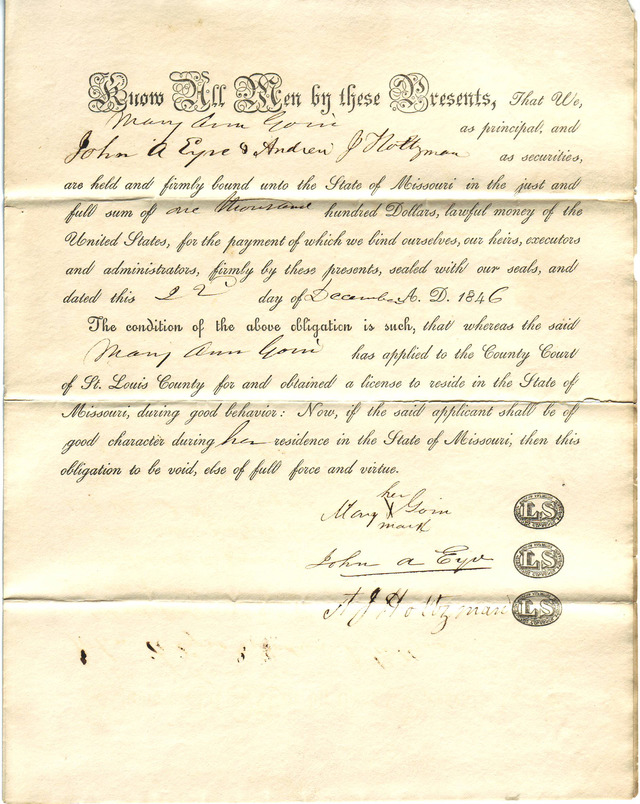 Know All Men by these Presents, That We,
Mary Ann Goin as principal, and
John A Eyre & Andrew J Holtzman as securities,
are held and firmly bound unto the State of Missouri in the just and
full sum of one thousand hundred Dollars, lawful money of the
United States, for the payment of which we bind ourselves, our heirs, executors
and administrators, firmly by these presents, sealed with our seals, and
dated this 22 day of December A. D. 1846
The condition of the above obligation is such, that whereas the said
Mary Ann Goin has applied to the County Court
of St. Louis County for and obtained a license to reside in the State of
Missouri, during good behavior: Now, if the said applicant shall be of
good character during her residence in the State of Missouri, then this
obligation to be void, else of full force and virtue.
her
Mary X Goin LS
mark
John A Eyre LS
A J Holtzman LS